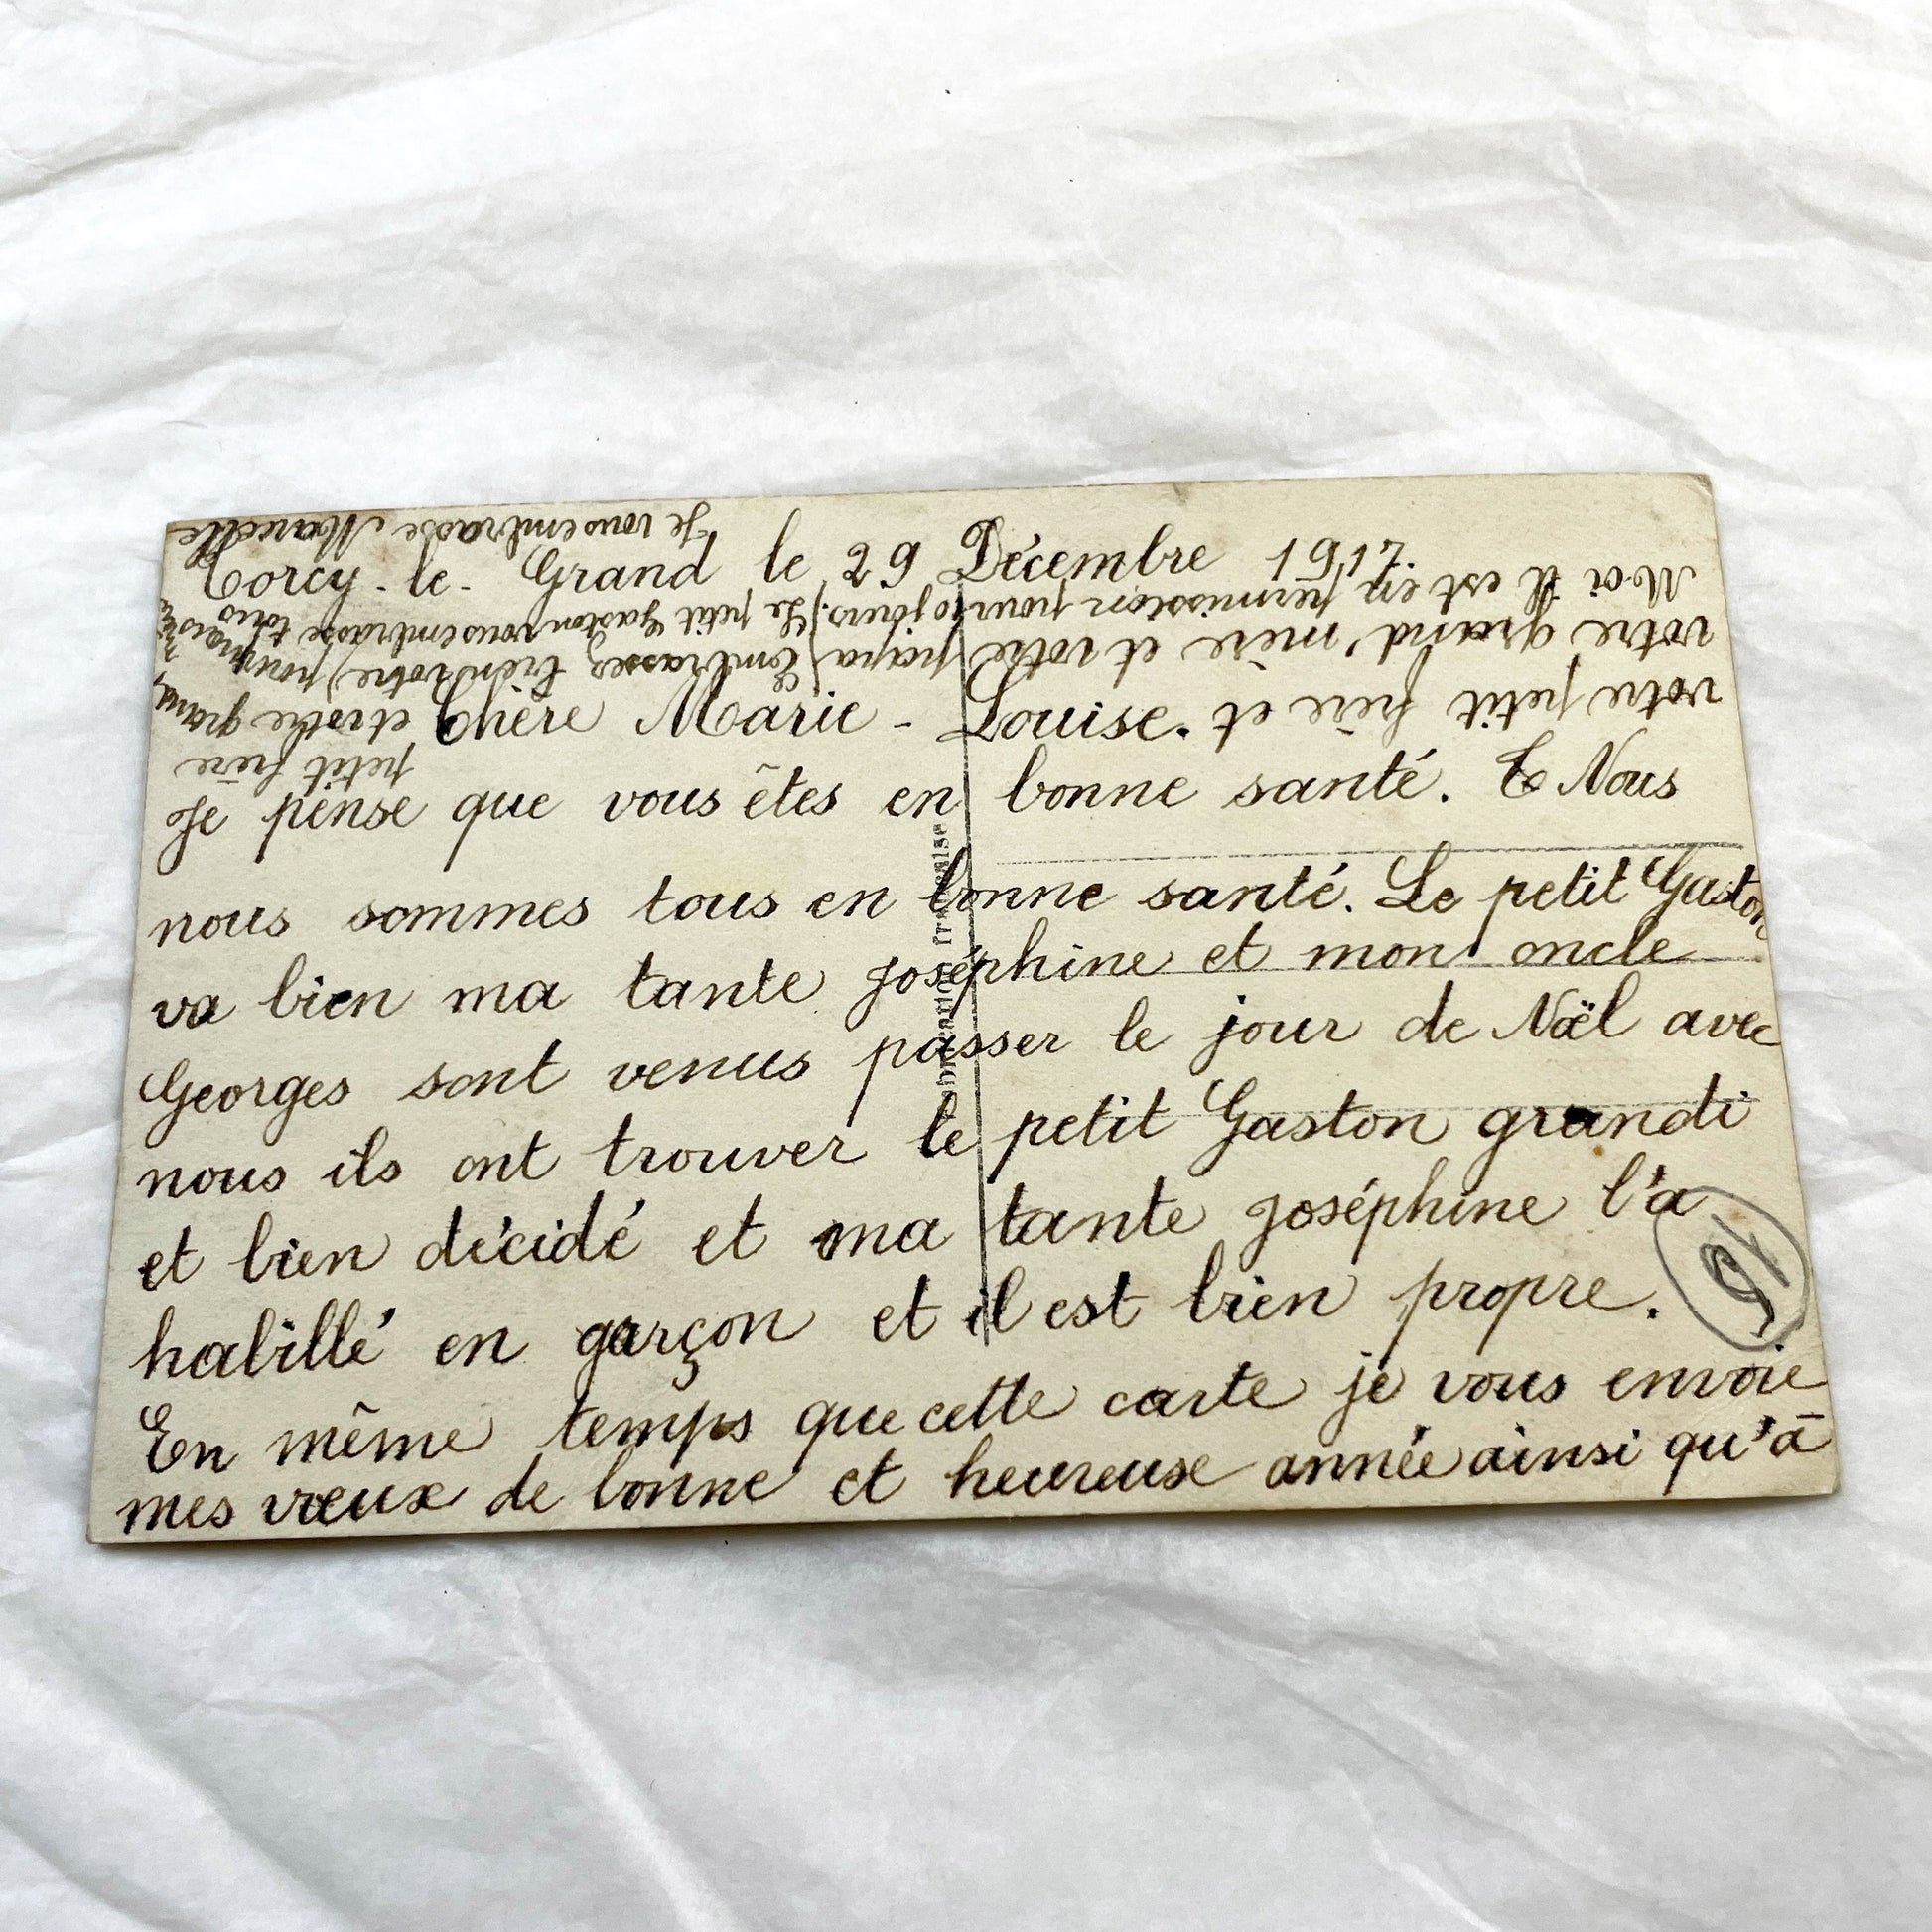 Torcy-le-Grand le 29 Décembre 1917
Chère Marie-Louise.
Je pense que vous êtes en bonne santé. Nous
nous sommes tous en bonne santé. Le petit Gaston
va bien ma tante Joséphine et mon oncle
Georges sont venus passer le jour de Noël avec
nous ils ont trouver le petit Gaston grandi
et bien décidé et ma tante Joséphine l'a
habillé en garçon et il est bien propre.
En même temps que cette carte je vous envoie
mes vœux de bonne et heureuse année ainsi qu'à
votre petit frère et
votre grand'mère et votre papa
Moi il est en permission pour 10 jours.
Embrassez bien votre
petit frère
et votre grand'mère
pour moi
Le petit Gaston vous embrasse tous
Je vous embrasse Marcelle
Fabrication française
16